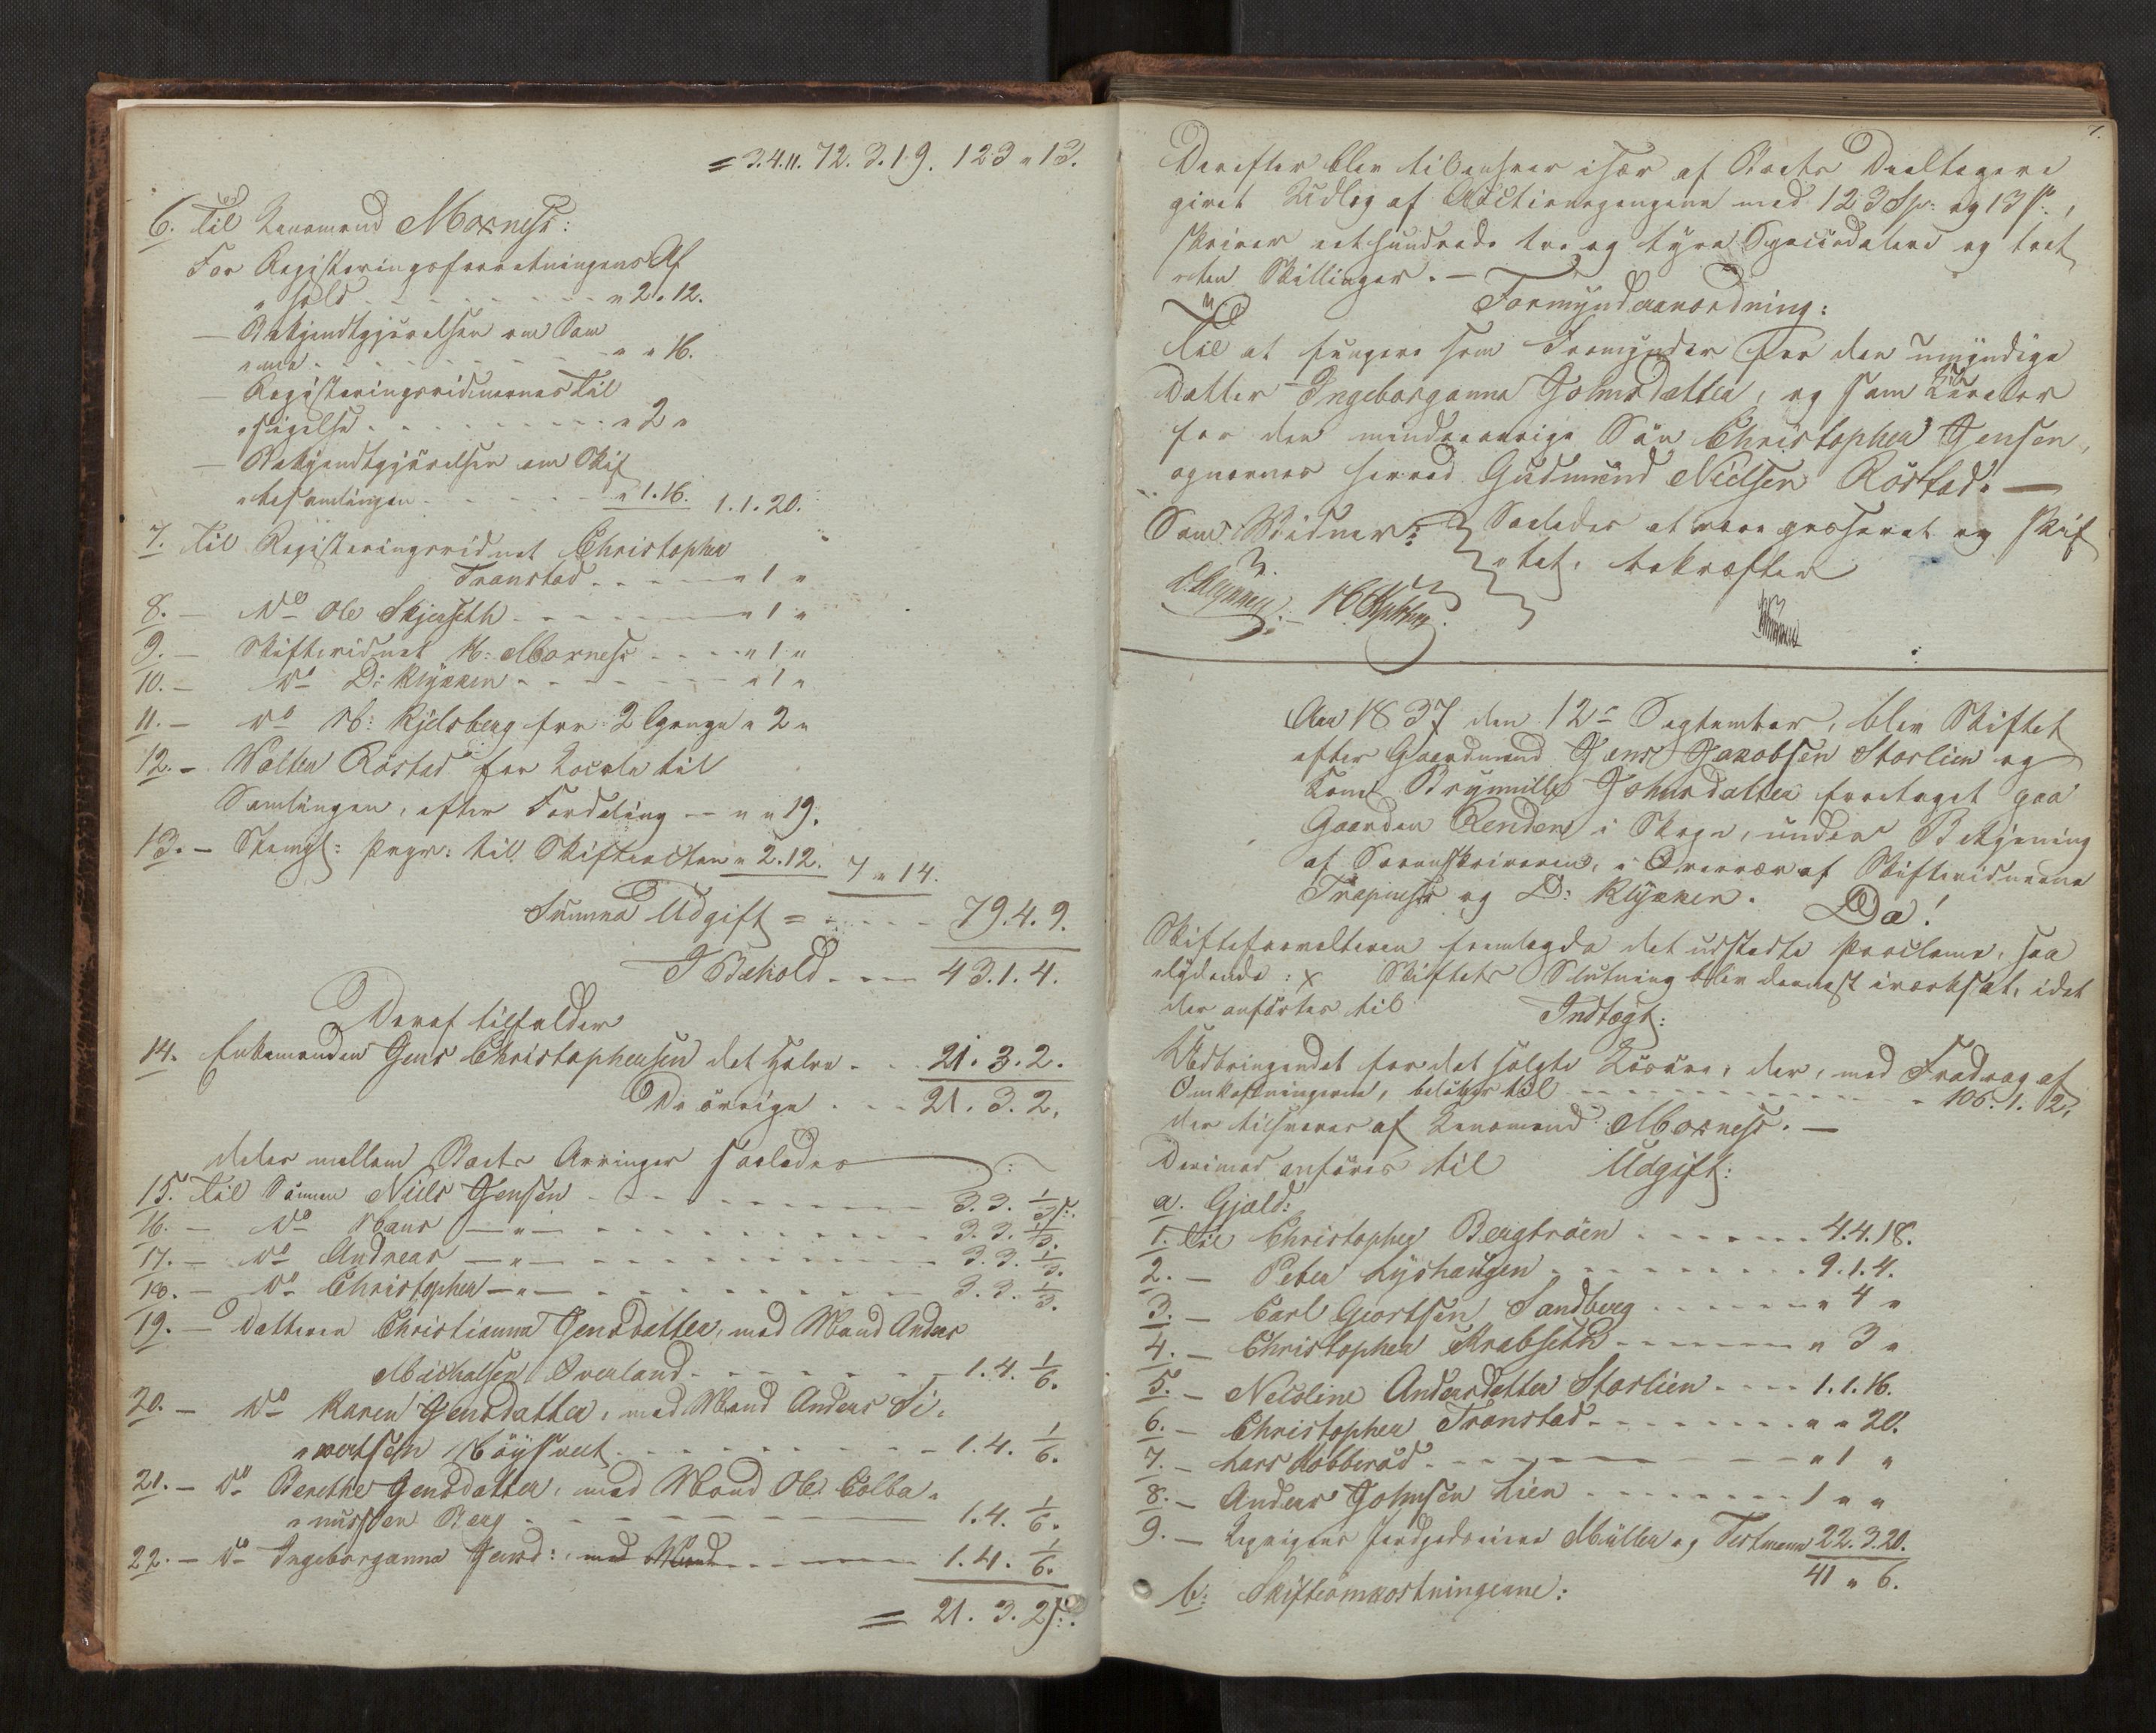 = 3.4.11. 72.3.19. 123 " 13.
6. Til Lensmand Moxness:
For Registeringsforretningens Af
" hold - - - " 2 " 12.
— Bekjendtgjørelsen om Sam
" me - - - " " 16.
— Registeringsvidnernes Til
" sigelse - - - " 2 "
— Bekjendtgjørelsen om Skif
" tesamlingen - - - " 1.16. 1.1.20.
7. Til Registeringsvidnet Christopher
Transtad - - - " 1 "
8. — Do Ole Skjerseth - - - " 1 "
9. — Skiftevidnet H: Moxness - - - " 1 "
10. — Do D: Klykken - - - " 1 "
11. — Do H: Kjelsberg for 2 Gange " 2 "
12. — Volten Röstad for Locale til
Samlingen, efter Fordeling - - " " 19.
13. — Stempl: Papr: til Skifteacten " 2.12. 7 " 14.
Summa Udgift = - - - 79.4.9.
I Behold - - - 43.1.4.
Deraf tilfalder
14. Enkemanden Jens Christophersen det halve - - 21.3.2.
De övrige - - - 21.3.2.
deles mellem Boets Arvinger saaledes
15. Til Sönnen Niels Jensen - - - 3.3. 1/3 s:
16. — Do Hans — " — - - - 3.3. 1/3.
17. — Do Andreas — " — - - - 3.3. 1/3.
18. — Do Christopher — " — - - - 3.3. 1/3.
19. — Datteren Christianna Jensdatter, med Mand Anders
Michalsen Overland - - - 1.4. 1/6.
20. — Do Karen Jensdatter, med Mand Anders Si
" vertsen Höysveet - - - 1.4. 1/6.
21. — Do Berethe Jensdatter, med Mand Ole Colba
" nussen Berg - - - 1.4. 1/6.
22. — Do Ingeborganna Jensd: med Mand - - - 1.4. 1/6.
= 21.3.2 s:
7.
Derefter blev tilenhver især af Boets Deeltagere
givet Udlæg af Auctionspengene med 123 Sp: og 13 s:,
skriver eethundrede tre og tyve Speciedalere og tret
" ten Skillinger. —
Formynderanordning:
Til at fungere som Formynder for den umyndige
Datter Ingeborganna Johnsdatter, og som Curator
for den mindreaarige Sön Christopher Jensen,
opnævnes herved Gudmund Nielsen Röstad. —
Som Vidner: Saaledes at være passeret og skif
" tet, bekræfter
D. Klykken. H Kjelsberg
Aar 1837 den 12te September, blev Skiftet
efter Gaardmand Jens Jakobsen Storlien og
Kone Brynnille Johnsdatter foretaget paa
Gaarden Renden i Skogn, under Betjening
af Sorenskriveren, i Overvær af Skiftevidnerne
og D: Klykken. Da!
Skifteforvalteren fremlagde det udstedte Proclama, saa
" lydende: x Skiftets Slutning blev dernæst iværksat, idet
der anförtes til
Indtægt:
Udbringendet for det solgte Lösöre, der, med Fradrag af
Omkostningerne, belöber til - - - 106.1.12.
der tilsvares af Lensmand Moxness. —
Derimod anföres til Udgift:
a. Gjæld:
1. Til Christopher Bergtröen - - - 4.4.18.
2. — Peter Lyshaugen - - - 9.1.4.
3. — Carl Geortsen Sandberg - - - " 4 "
4. — Christopher Krabseth - - - " 3 "
5. — Nicoline Andersdatter Storlien - - - 1.1.16.
6. — Christopher Transtad - - - " " 20.
7. — Lars Kobberöd - - - " 1 "
8. — Anders Johnsen Lien - - - 1 " "
9. — Leyrigens Jordgodseiere Müller og Testmann 22.3.20.
41 " 6.
b: Skifteomkostningerne: